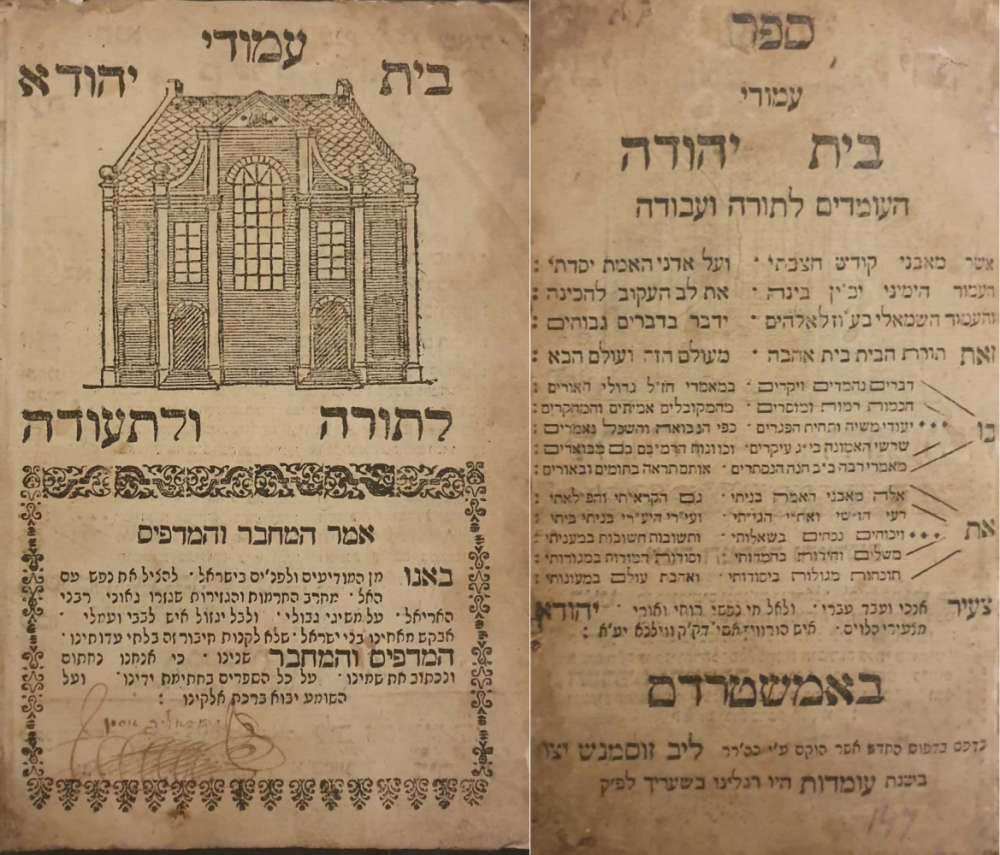 עמודי
בית יהודא
לתורה ולתעודה
אמר המחבר והמדפיס
באנו מן המודיעים ולפנ״ים בישראל · להציל את נפש עם
האל · מחרב החרמות והגזירות שגזרו גאוני רבני
האריאל · על משיגי גבולי · ולבל יגזול איש לבבי ועמלי ·
אבקש מאחינו בני ישראל · שלא לקנות חיבור זה בלתי עדותינו ·
המדפיס והמחבר שנינו · כי אנחנו נחתום
ונכתוב את שמינו · על כל הספרים בחתימת ידינו · ועל
השומע יבוא ברכת אלקינו :
ספר
עמודי
בית יהודה
העומדים לתורה ועבודה
אשר מאבני קודש חצבתי · ועל אדני האמת יסדתי :
העמוד הימיני יכ״ין בינה · את לב העקוב להכינה :
והעמוד השמאלי בע״וז לאלהים · ידבר בדברים גבוהים :
זאת תורת הבית בית אהבה · מעולם הזה ועולם הבא :
בו
דברים נחמדים ויקרים · במאמרי חז״ל גדולי האורים :
חכמות רמות ומוסרים · מהמקובלים אמיתים והמחקרים :
יעודי משיח ותחית הפגרים · כפי הנבואה והשכל נאמרים :
שרשי האמונה בי״ג עיקרים · וכוונת הרמב״ם בם מבוארים :
מאמרי רבה ב״ב חנה הנסתרים · אותם תראה בתומים ובאורים :
את
אלה מאבני האמת בניתי · גם הקראתי והפלאתי :
רעי · ועי״רי היע״רי בניתי ביתי :
ויכוחים נכחים בשאלותי · ותשובות חשובות במעניתי :
משלים וחידות בחמדותי · וסודות המידות במגורותי :
תוכחות מגולות ביסודותי · ואהבת עולם במעונותי :
צעיר אנכי ועבד עברי · ולאל חי נפשי רוחי ואורי · יהודא
מצעירי הלוים · איש הורוויץ אסי״ דק״ק ווילנא יע״א :
באמשטרדם
נדפס בדפוס החדש אשר הוקם ע״י כה״רר ליב זוסמנש יצו
בשנת עומדות היו רגלינו בשעריך לפ״ק
147